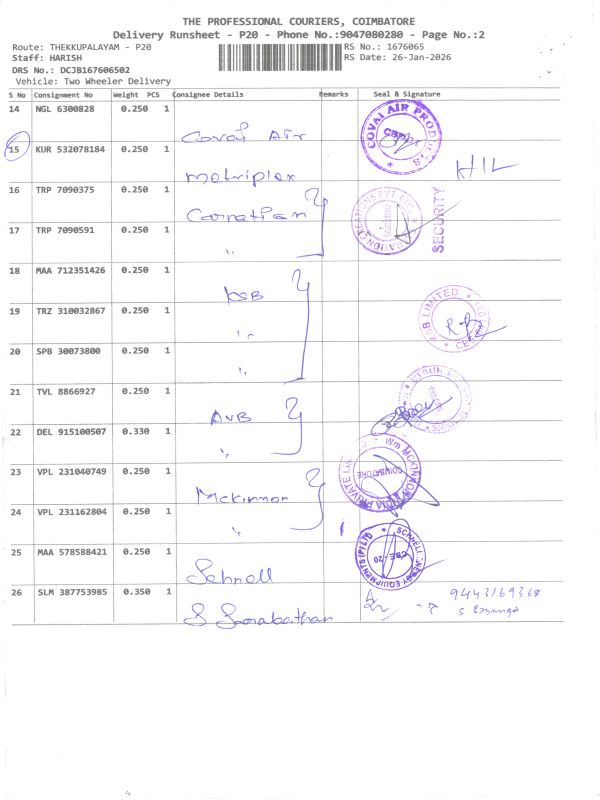 THE PROFESSIONAL COURIERS, COIMBATORE
Delivery Runsheet - P20 - Phone No.:9047080280 - Page No.:2
Route: THEKKUPALAYAM - P20 RS No.: 1676065
Staff: HARISH RS Date: 26-Jan-2026
DRS No.: DCJB167606502
Vehicle: Two Wheeler Delivery
S No Consignment No Weight PCS Consignee Details Remarks Seal & Signature
14 NGL 6300828 0.250 1
Covai Air COVAI AIR PROD
15 KUR 532078184 0.250 1
HIL
16 TRP 7090375 0.250 1
SECURITY
17 TRP 7090591 0.250 1
"
18 MAA 712351426 0.250 1
KSB
19 TRZ 310032867 0.250 1 KSB LIMITED
"
20 SPB 30073800 0.250 1
"
21 TVL 8866927 0.250 1
AVB
22 DEL 915100507 0.330 1
"
23 VPL 231040749 0.250 1
Mckinnon COIMBATORE
24 VPL 231162804 0.250 1
"
25 MAA 578588421 0.250 1 CBE-20
Schnell
26 SLM 387753985 0.350 1 9443169368
S